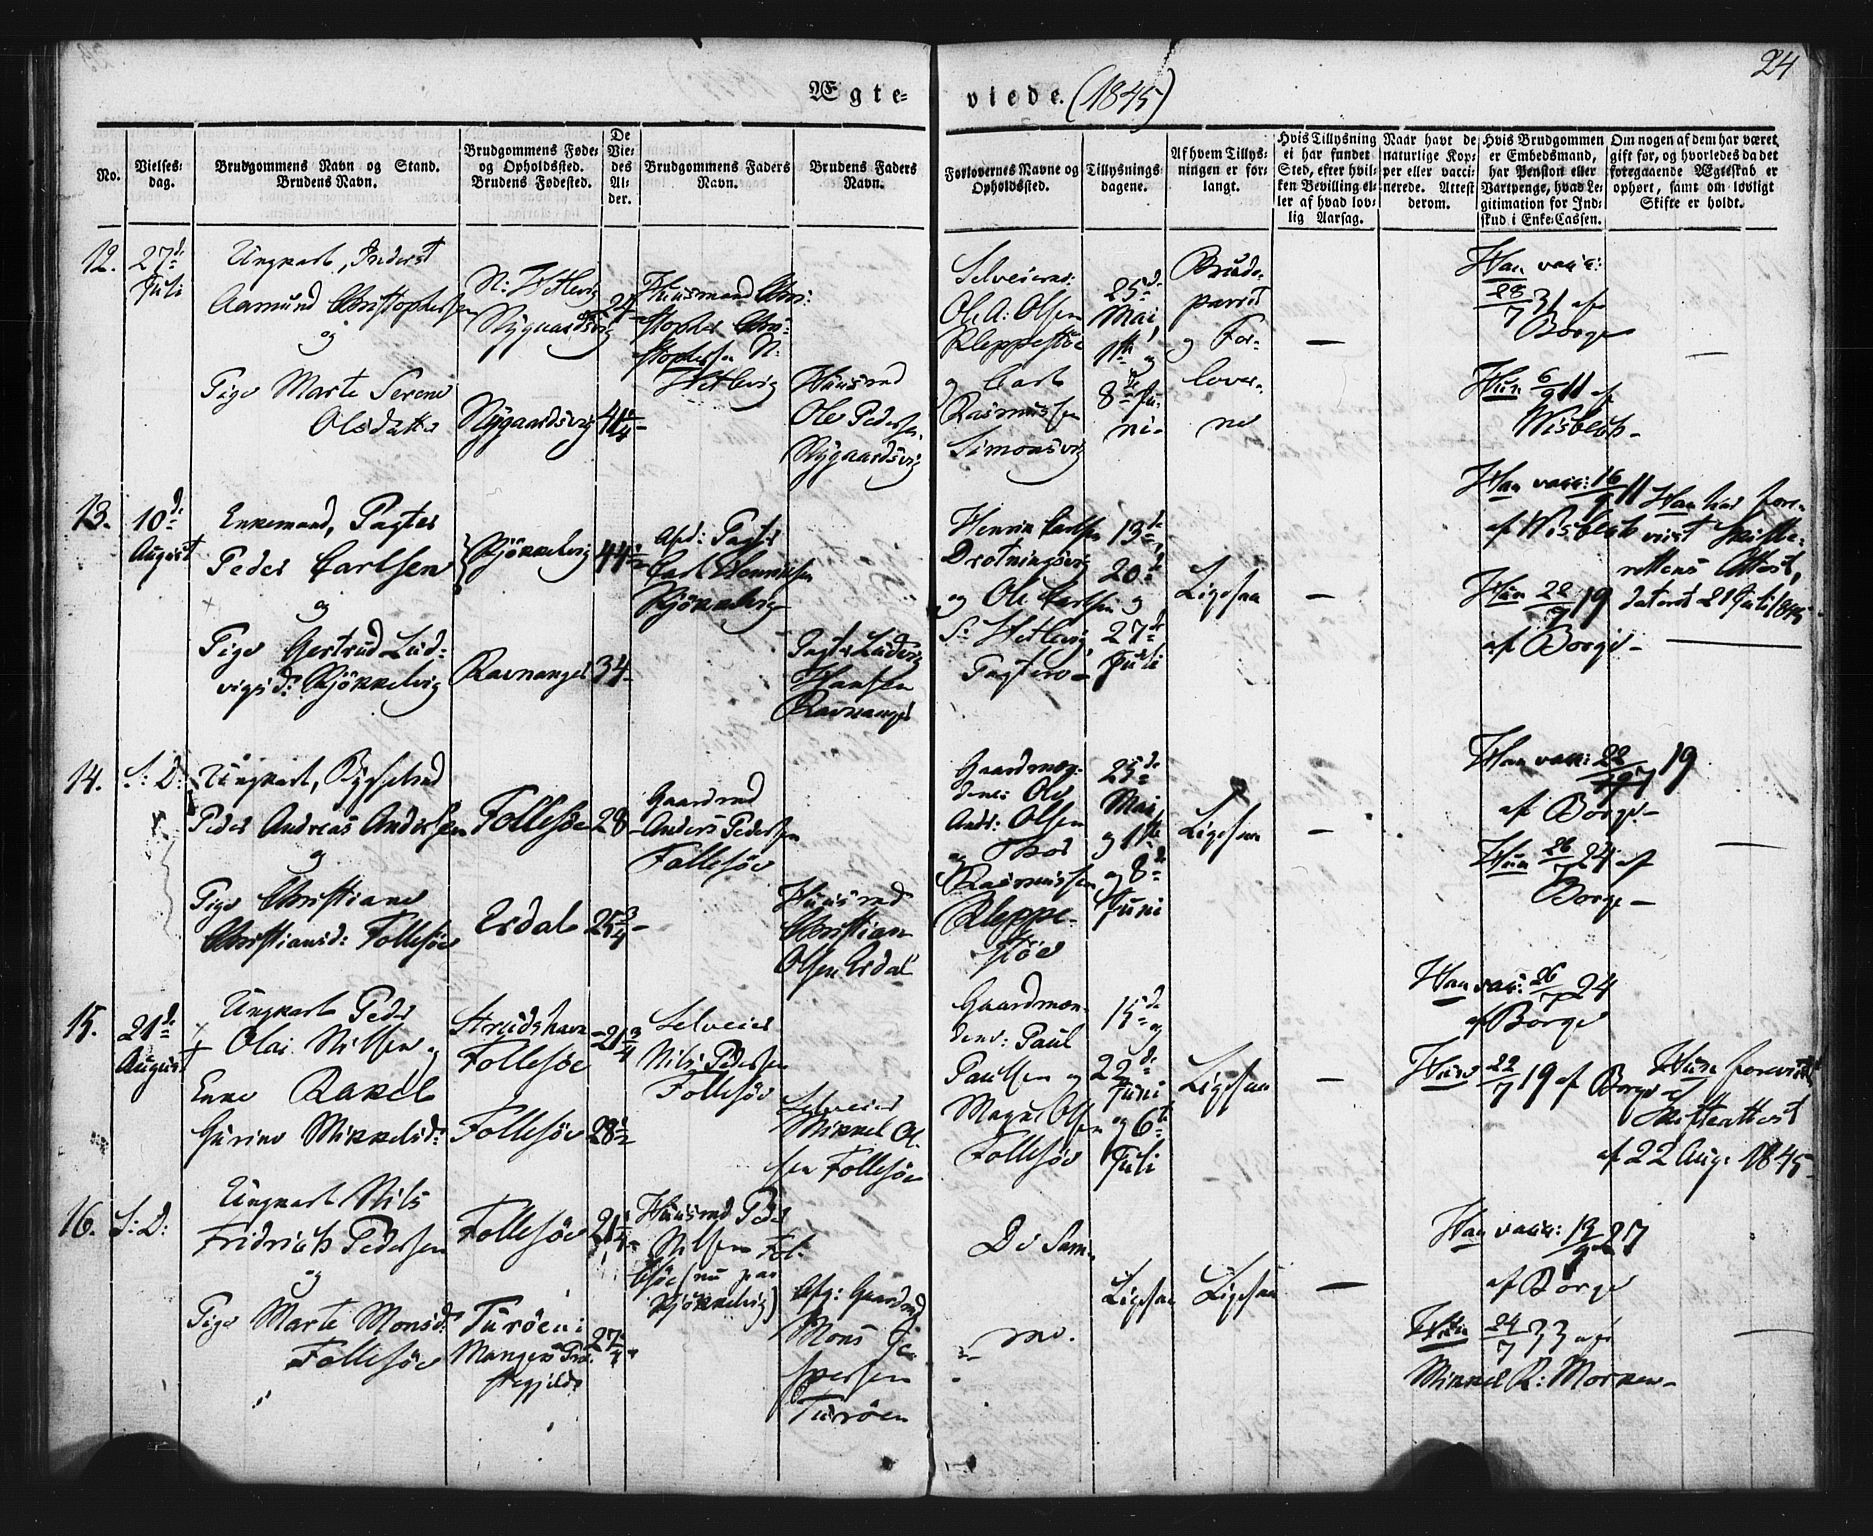 24
Ægte-
viede. (1845)
No.
Vielses-
dag.
Brudgommens Navn og Stand.
Brudens Navn.
Brudgommens Føde-
og Opholdssted.
Brudens Fødested.
De
Vie-
des
Al-
der.
Brudgommens Faders
Navn.
Brudens Faders
Navn.
Forlovernes Navne og
Opholdssted.
Tillysnings-
dagene.
Af hvem Tillys-
ningen er for-
langt.
Hvis Tillysning
ei har fundet
Sted, efter hvil-
ken Bevilling el-
ler af hvad lov-
lig Aarsag.
Naar havt de
naturlige Kop-
per eller vacci-
nerede. Attest
derom.
Hvis Brudgommen
er Embedsmand,
har Pension eller
Vartpenge, hvad Le-
gitimation for Ind-
skud i Enke-Cassen.
Om nogen af dem har været
gift for, og hvorledes da det
foregaaende Ægteskab er
ophørt, samt om lovligt
Skifte er holdt.
12.
27d:
Juli
Ungkarl, Inderst
Aamund Christophersen
og
Pige Marte Serine
Olsdatter
Nygaardsvig
24
41 1/4
Huusmand Chri-
stopher Chri-
stophersen N:
Huusmd
Ole Pedersen
Nygaardsvig
Selveierne
Ole A: Olsen
Kleppestöe
og Carl
Rasmussen
Simonsvig
25d:
Mai,
1ste og
8de Ju-
ni
Brude-
parret
og For-
lover-
ne
—
Han vacc:
28/7 31 af
Borge
Hun 6/9 11 af
Wisbech
—
13.
10d:
August
Enkemand, Pagter
Peder Carlsen
og
Pige Gertrud Lud-
vigsd: Kjökkelvig
Kjökkelvig
Ravnanger
44 1/2
34
Afd: Pagter
Carl Henriksen
Kjökkelvig
Pagter Ludvig
Hansen
Ravnanger
Henrik Carlsen
Drotningsvig
og Ole Carlsen
Pagtere
13de,
20de
og
27de
Juli
Ligesaa
—
Han vacc: 16/9 11
af Wisbech
Hun 22/7 19
af Borge
Han har fore-
viist Skifte-
rettens Attest,
dateret 21 Juli 1845
14.
S: D:
Ungkarl, Bysselmd
Peder Andreas Andersen
og
Pige Christiane
Christiansd: Follesöe
Follesöe
Erdal
28
25 3/4
Gaardmd
Anders Pedersen
Follesöe
Huusmd
Christian
Olsen Erdal
Gaardmæn-
dene Ole
Andr: Olsen
og Thor
Rasmussen
Kleppe-
stöe
25de
Mai
og 1ste
og 8de
Juni
Ligesaa
—
Han vacc: 22/7 19
af Borge
Hun 26/7 24 af
Borge
—
15.
21d:
August
Ungkarl Peder
Olai Nilsen og
Enke Rakel
Gurine Mikkelsd:
Strudshavn
Follesöe
Follesöe
21 3/4
28 1/2
Selveier
Nils Pedersen
Follesöe
Selveier
Mikkel Ol-
sen Follesöe
Gaardmæn-
dene: Paul
Paulsen og
Magne Olsen
Follesöe
15de og
22de
Juni
og 6te
Juli
Ligesaa
—
Han vacc: 26/7 24
af Borge
Hun 22/7 19 af Borge
Hun foreviist
Skifteattest
af 22 Aug: 1845
16.
S: D:
Ungkarl Nils
Fridrich Pedersen
og
Pige Marte Monsd:
Follesöe
Follesöe
Turöen i
Mangers Præ-
stegjeld
21 1/4
27 1/4
Huusmd Peder
Nilsen Fol-
lesöe (nu paa
Kjökkelvig)
Afg: Gaardmd
Mons Je-
spersen
Turöen
De sam-
me.
Ligesaa
Ligesaa
—
Han vacc: 12/9 27
af Borge
Hun 24/7 33 af
Mikkel R: Morken
—